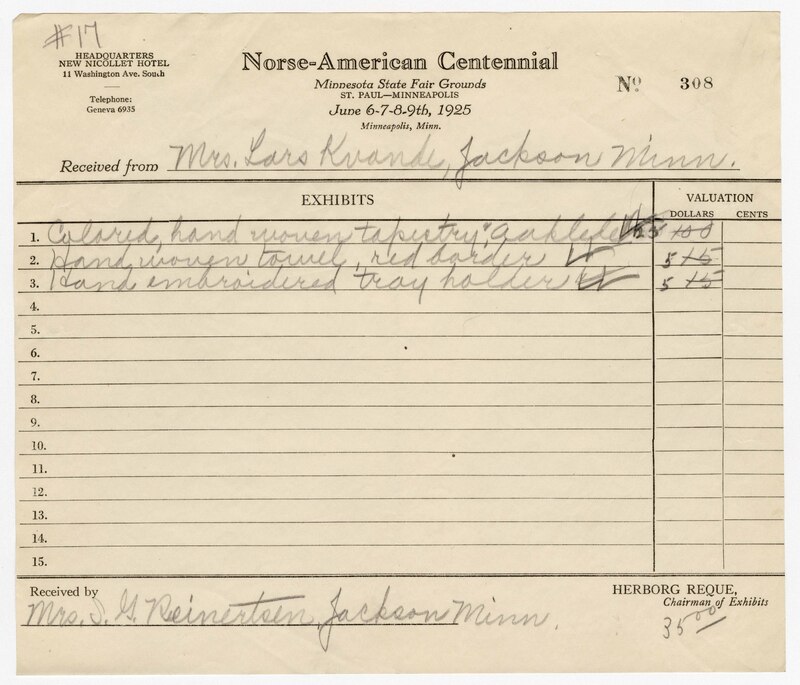 #17
HEADQUARTERS
NEW NICOLLET HOTEL
11 Washington Ave. South
Telephone:
Geneva 6935
Norse-American Centennial
Minnesota State Fair Grounds
ST. PAUL—MINNEAPOLIS
June 6-7-8-9th, 1925
Minneapolis, Minn.
No 308
Received from Mrs. Lars Kvande, Jackson Minn.
EXHIBITS VALUATION
DOLLARS CENTS
1. Colored, hand woven tapestry, 25 100
2. Hand woven towel, red border 5 15
3. Hand embroidered tray holder 5 15
4.
5.
6.
7.
8.
9.
10.
11.
12.
13.
14.
15.
Received by
Mrs. S. G. Reinertsen, Jackson Minn.
HERBORG REQUE,
Chairman of Exhibits
35.00